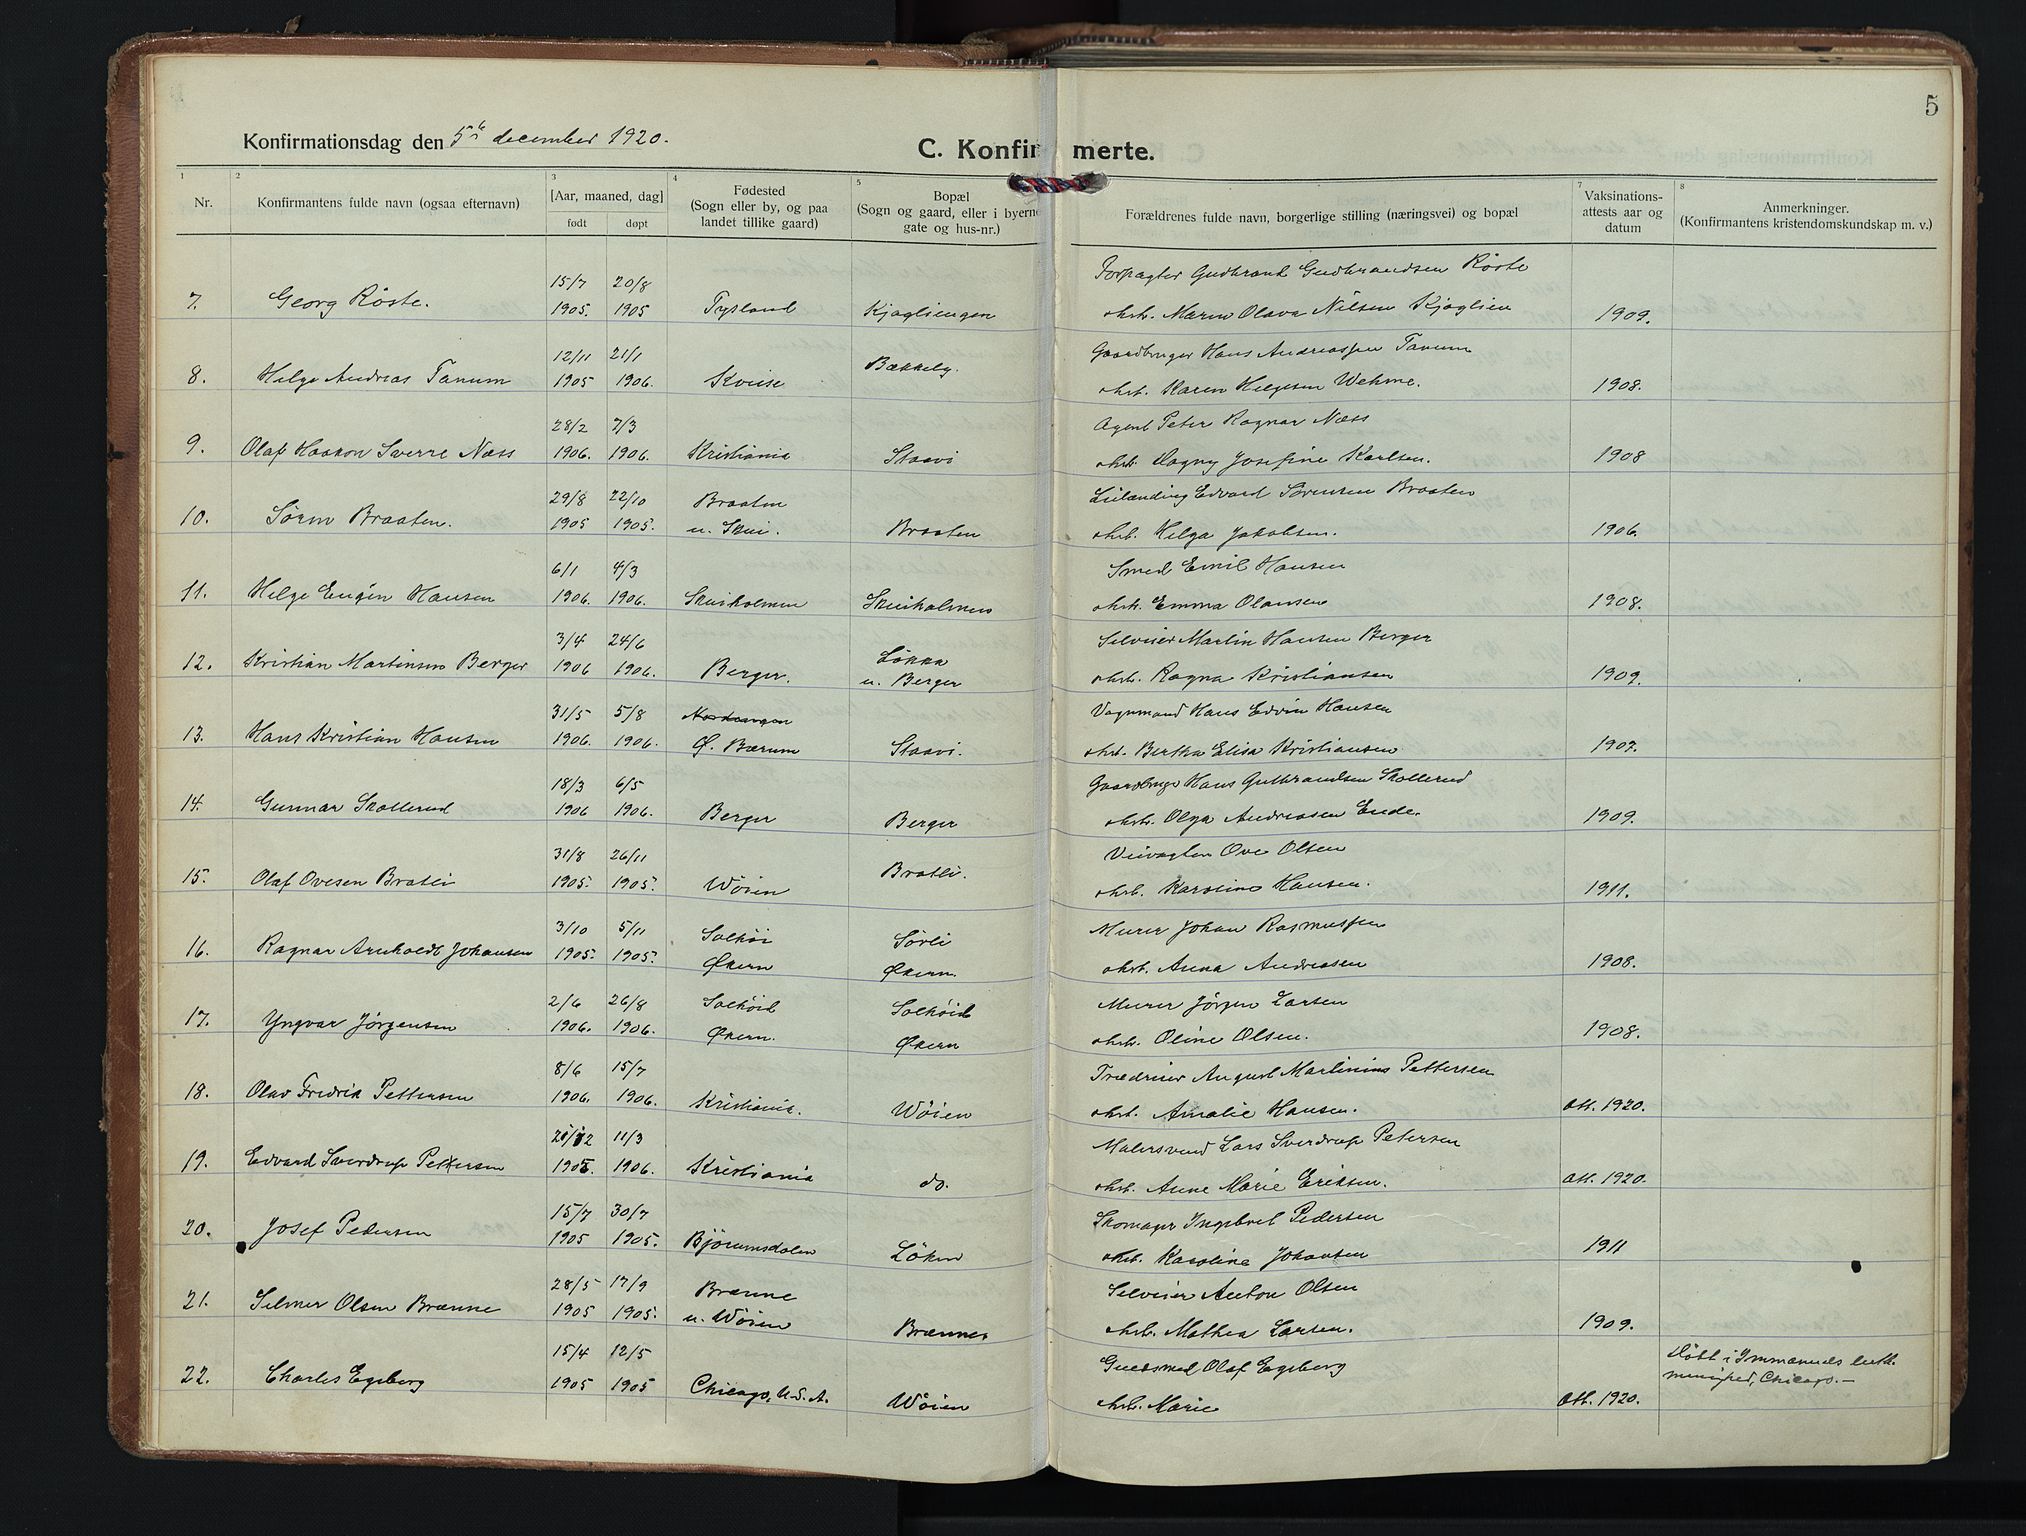 5
Konfirmationsdag den 5te december 1920.
C. Konfirmerte.
1 2 3 4 5 7 8
Nr.
Konfirmantens fulde navn (ogsaa efternavn)
[Aar, maaned, dag]
født døpt
Fødested
(Sogn eller by, og paa
landet tillike gaard)
Bopæl
(Sogn og gaard, eller i byerne
gate og hus-nr.)
Forældrenes fulde navn, borgerlige stilling (næringsvei) og bopæl
Vaksinations-
attests aar og
datum
Anmerkninger.
(Konfirmantens kristendomskundskap m. v.)
15/7 20/8 Forpagter Gudbrand Gudbrandsen Røste
7. Georg Røste. 1905. 1905 Tysland Kjagliengen ohst. Maren Olava Nilsen Kjaglien 1909.
12/11 21/1 Bækkely. Gaardbruger Hans Andreassen Tanum
8. Helge Andreas Tanum 1905 1906. Kveise ohst. Karen Helgesen Wehme. 1908.
28/2 7/3 Agent Peter Ragnar Næss
9. Olaf Haakon Sverre Næss 1906. 1906. Kristiania Staavi ohst. Dagny Josefine Karlsen. 1908
29/8 22/10 Braaten Leilænding Edvard Sørensen Braaten
10. Søren Braaten. 1905 1905. u. Skui. Braaten ohst. Helga Jakobsen. 1906.
6/1 4/3 Smed Emil Hansen
11. Helge Eugen Hansen 1906. 1906. Skuiholmen Skuiholmen ohst. Emma Olausen 1908.
3/4 24/6 Løkka Selveier Martin Hansen Berger
12. Kristian Martinsen Berger 1906 1906. Berger. u. Berger ohst. Ragna Kristiansen 1909.
31/5 5/8 Vognmand Hans Edvin Hansen
13. Hans Kristian Hansen 1906. 1906. Ø. Bærum Staavi. ohst. Bertha Elisa Kristiansen 1907.
18/3 6/5 Gaardbruger Hans Gulbrandsen Skollerud
14. Gunnar Skollerud 1906 1906. Berger Berger ohst. Olga Andreasen Ende. 1909.
31/8 26/11 Bratli. Veivogten Ove Olsen
15. Olaf Ovesen Bratli 1905. 1905. Wøien ohst. Karoline Hansen. 1911.
3/10 5/11 Solhøi Sørli Murer Johan Rasmussen
16. Ragnar Arnholdt Johansen 1905. 1905. Økern Økern. ohst. Anna Andreasen 1908.
2/6 26/8 Solhøid Solhøid Murer Jørgen Larsen
17. Yngvar Jørgensen 1906. 1906. Økern. Økern ohst. Oline Olsen. 1908.
8/6 15/7 Trædreier August Martinius Pettersen
18. Olav Fredrik Pettersen 1906. 1906. Kristiania. Wøien ohst. Amalie Hansen. Att. 1920.
11/3 Malersvend Lars Sverdrup Petersen
19. Edvard Sverdrup Petersen 1905. 1906. Kristiania do. ohst. Anne Marie Eriksen. Att. 1920.
15/7 30/7 Skomager Ingebret Pedersen
20. Josef Pedersen 1905 1905. Bjørumsdalen Løken ohst. Karoline Johansen 1911
28/5 17/9 Brænne Selveier Anton Olsen
21. Selmer Olsen Brænne 1905 1905. u. Wøien Brænne ohst. Mathea Larsen. 1909.
15/4 12/5 Olaf Egeberg Døbt i Immanuels luth.
22. Charles Egeberg 1905 1905 Chicago, U.S.A. Wøien ohst. Marie Att. 1920. menighed, Chicago.—